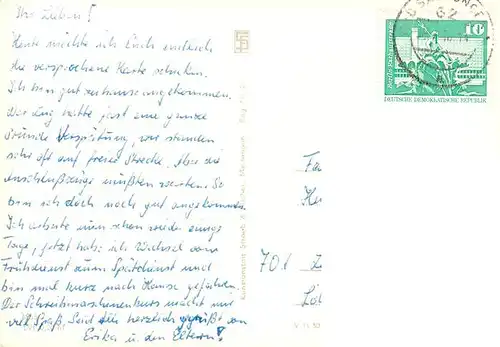 Ihr Lieben!
Heute möchte ich Euch endlich
die versprochene Karte schicken.
Ich bin gut zuhause angekommen.
Der Zug hatte fast eine ganze
Stunde Verspätung, wir standen
sehr oft auf freier Strecke. Aber die
Anschlußzüge mußten warten. So
bin ich doch noch gut angekommen.
Ich arbeite nun schon wieder einige
Tage, jetzt habe ich Wechsel vom
Frühdienst zum Spätdienst und
bin mal kurz nach Hause gefahren.
Der Schreibmaschinenkurs macht mir
viel Spaß. Seid alle herzlich gegrüßt von
Erika u. den Eltern!
10
Berlin, Rathausstraße
DEUTSCHE DEMOKRATISCHE REPUBLIK
62
Fa
701